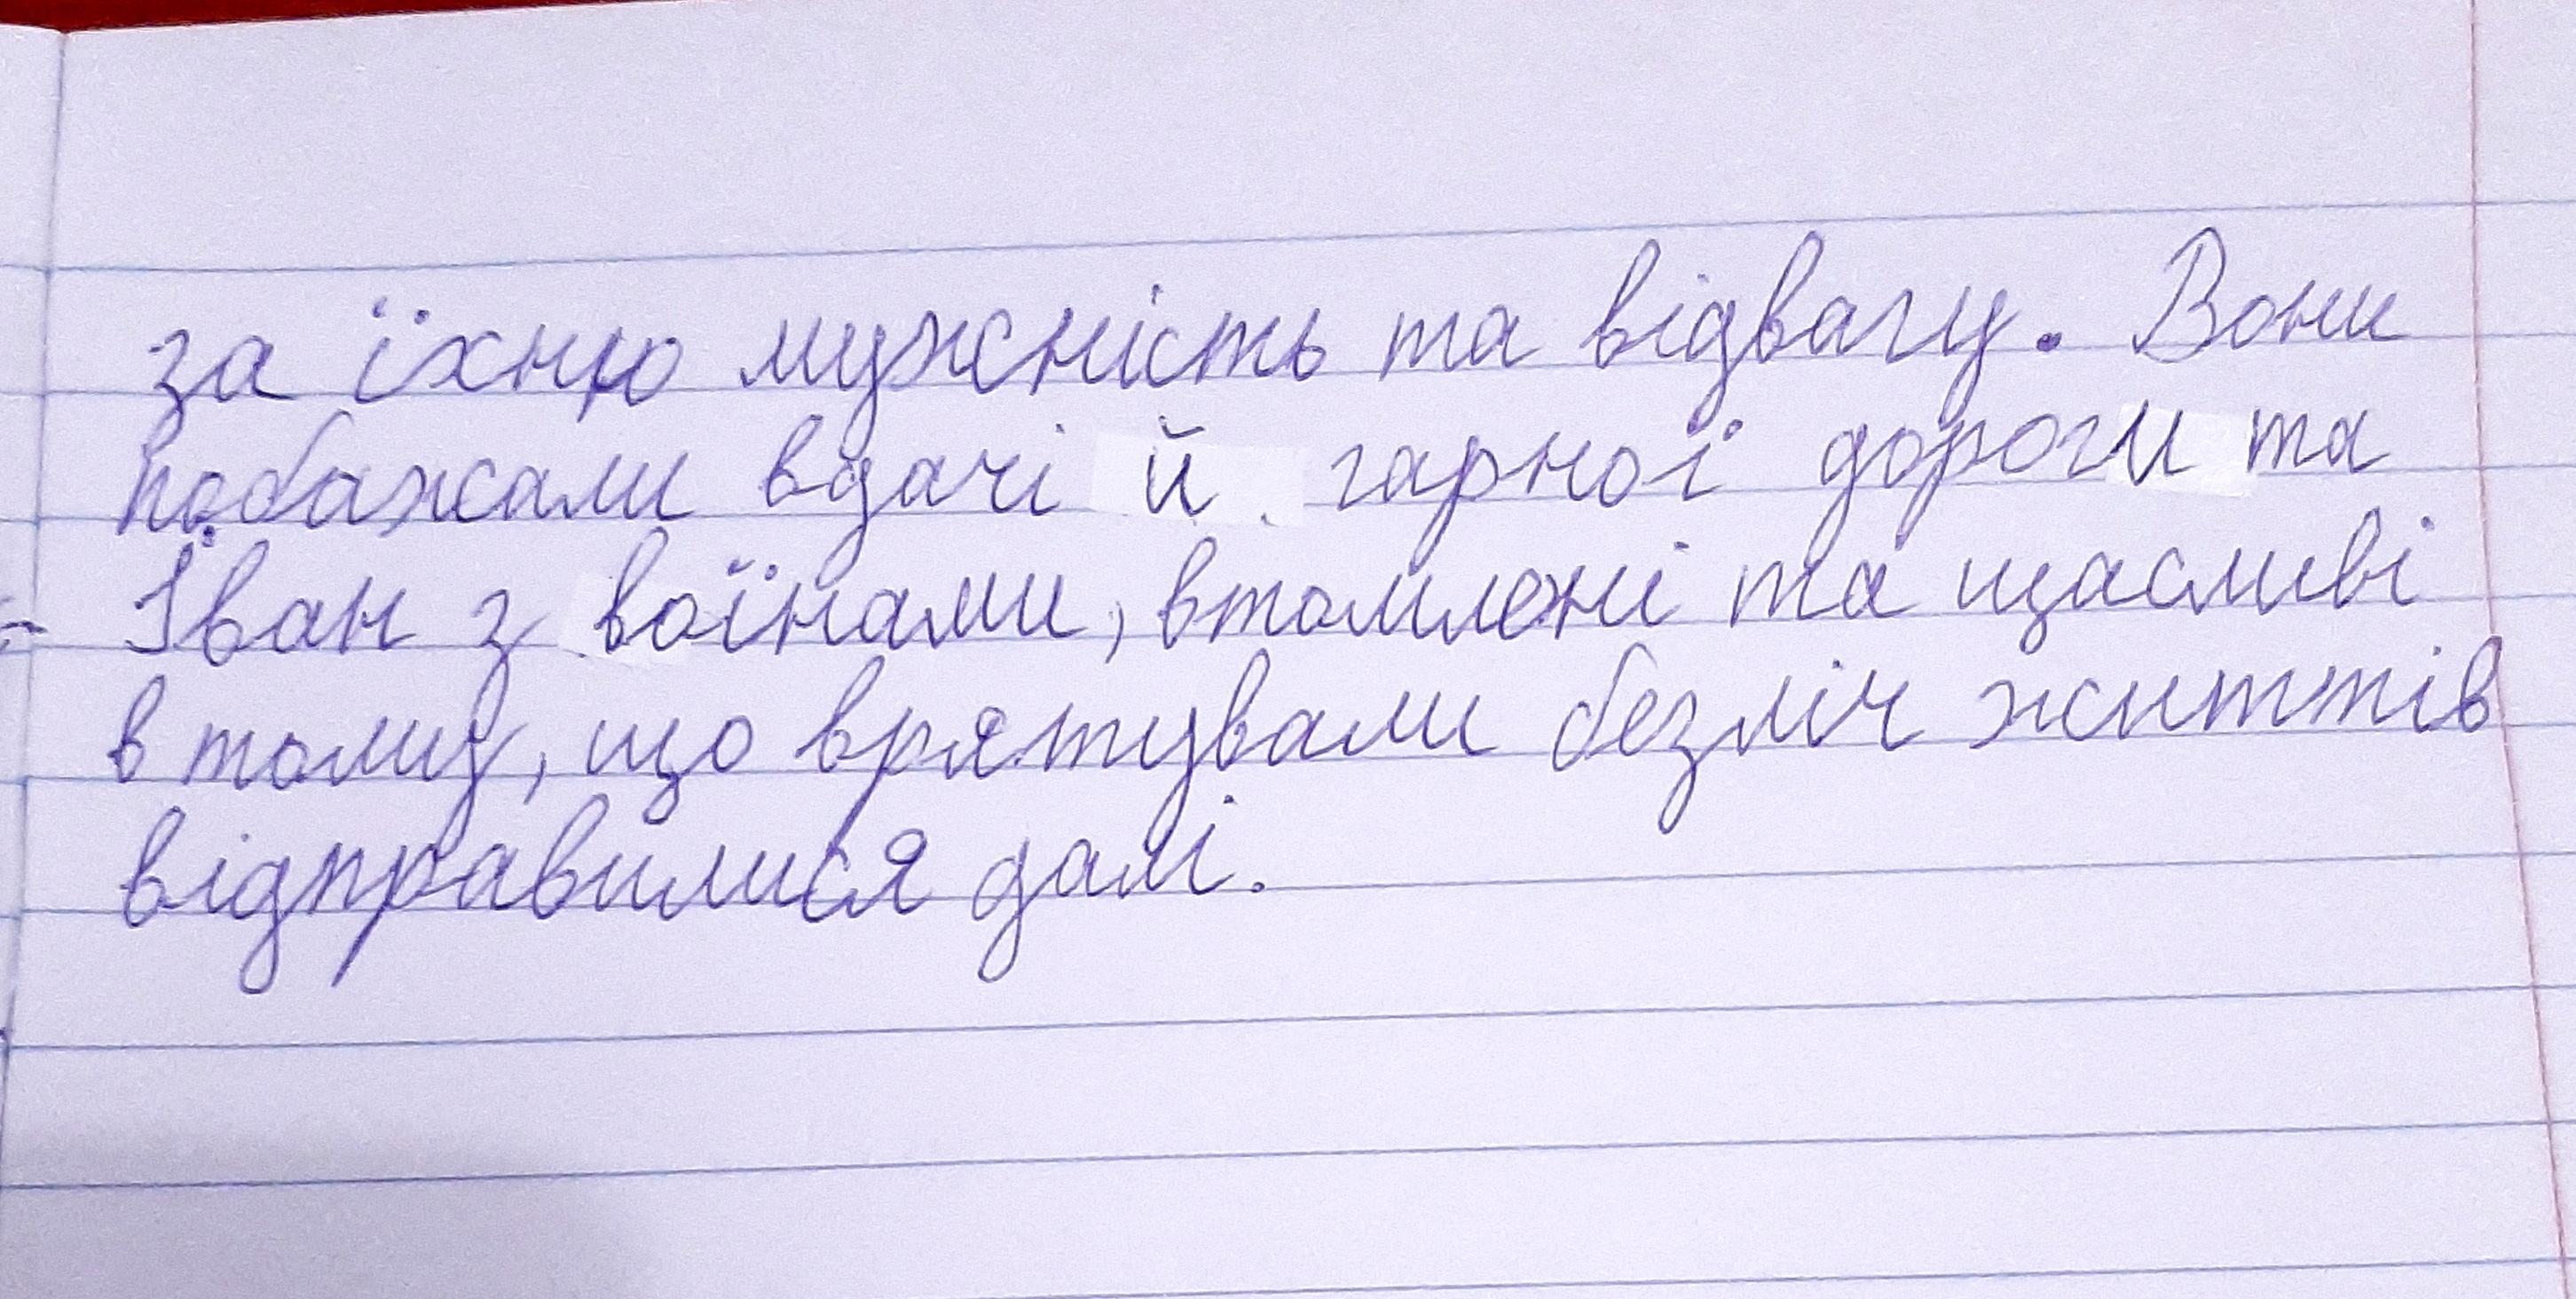 за їхню мужність та відвагу. Вони
побажали вдачі й гарної дороги та
Іван з воїнами, втомлені та щасливі
в тому, що врятували безліч життів
відправилися далі.